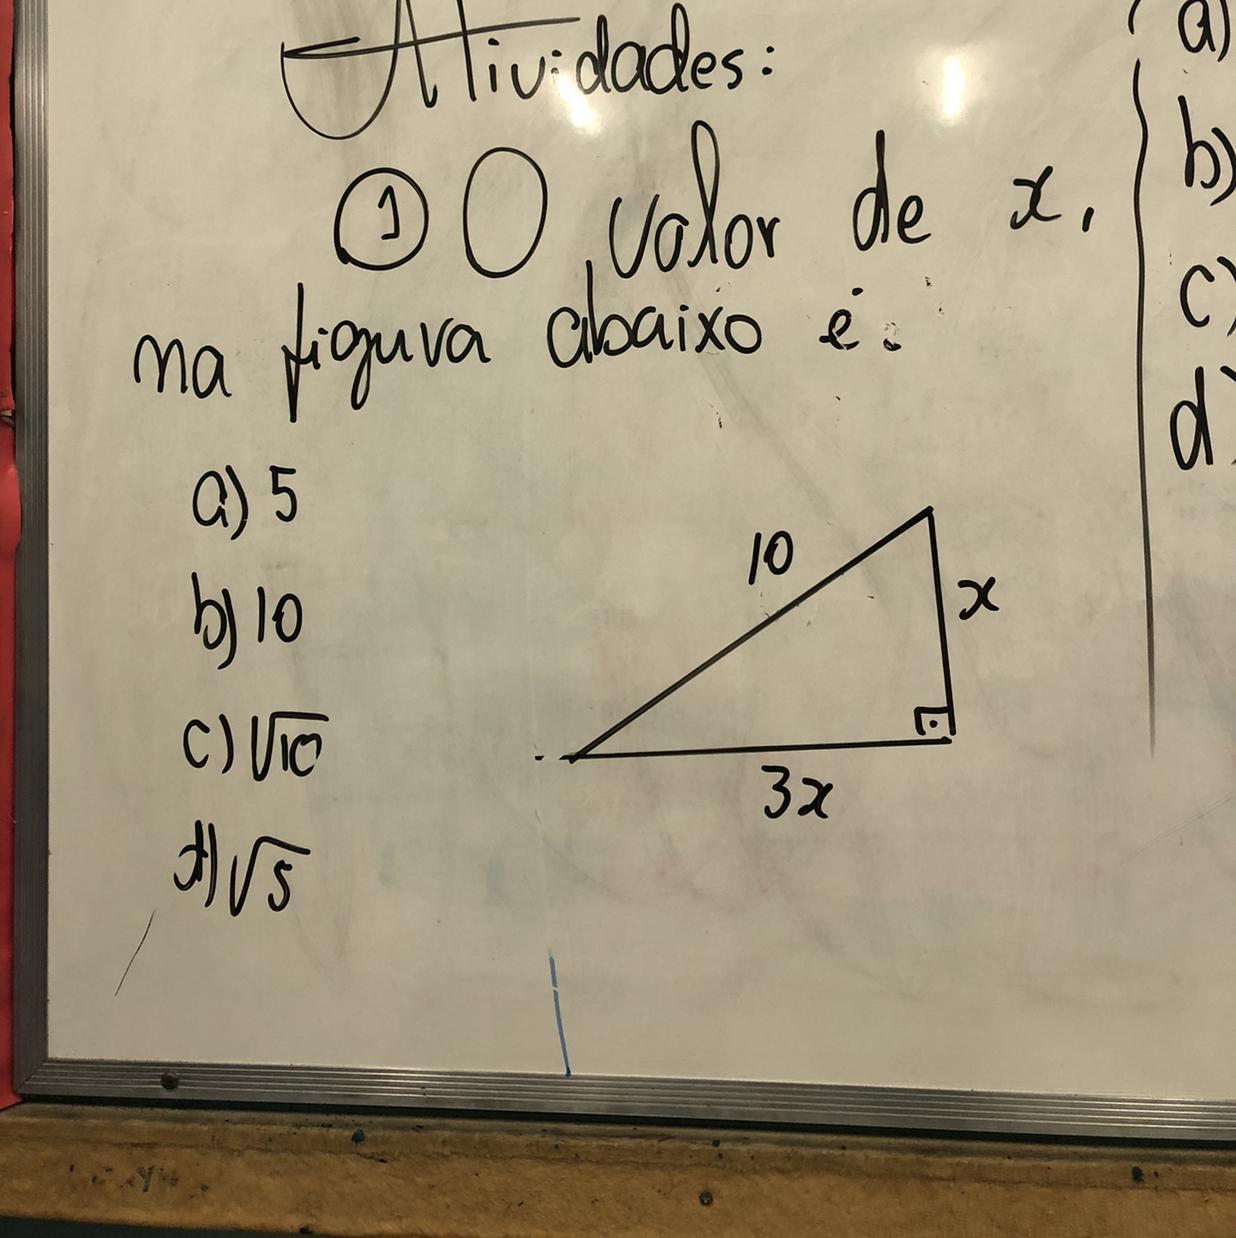 Atividades:
① O valor de x,
na figura abaixo é:
a) 5
b) 10
c) √10
d) √5
10
x
3x
a)
b)
c)
d)